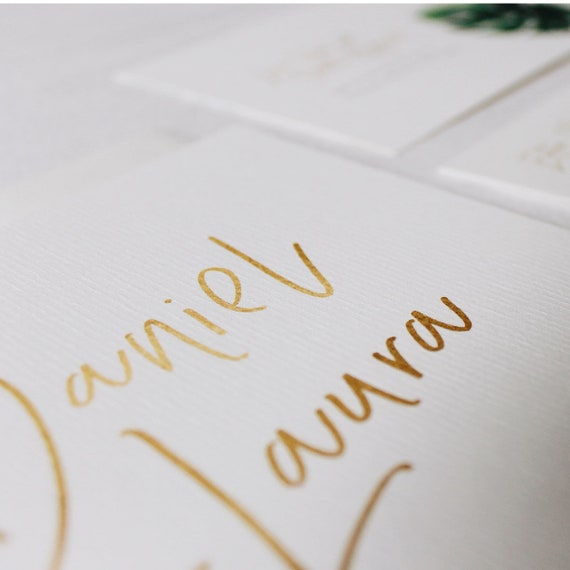 Daniel
Laura